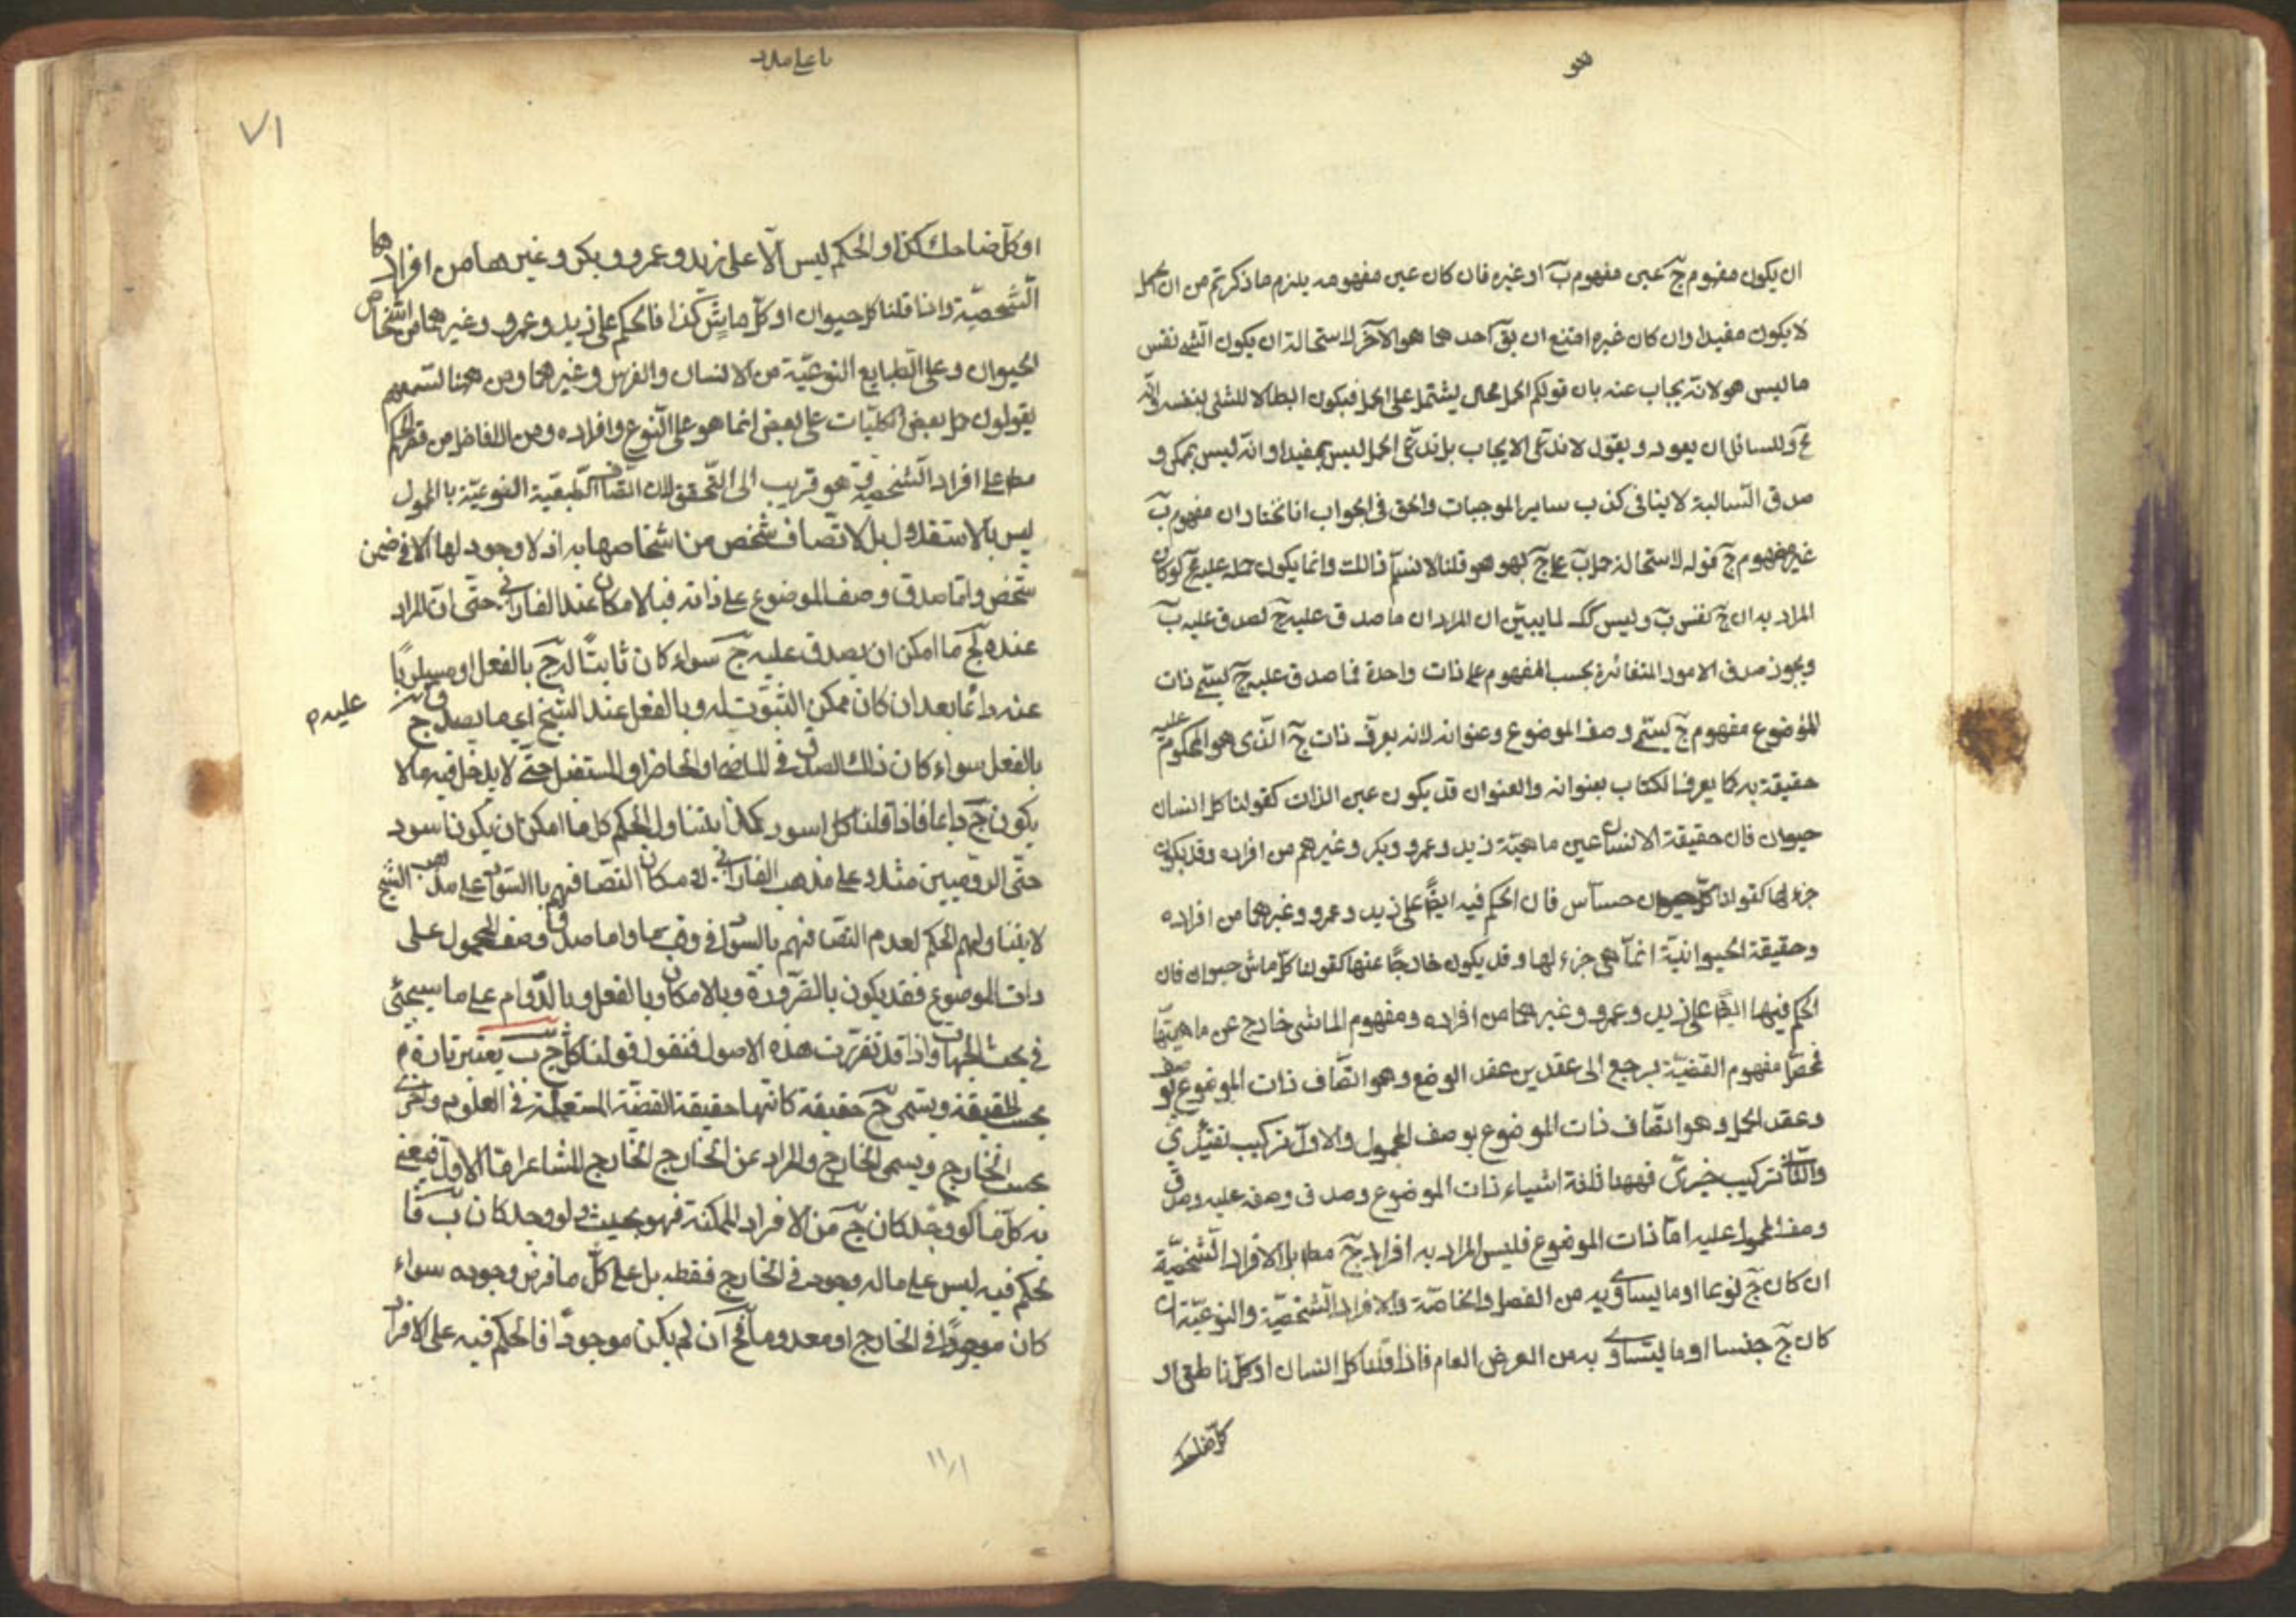 ان يكون مفهوم ج عين مفهوم ب او غيره فان كان عين مفهومه يلزم ما ذكرتم من ان الحمل
لا يكون مفيدا وان كان غيره امتنع ان يق احدهما هو الآخر لاستحالة ان يكون الشئ نفس
ما ليس هو لانه يجاب عنه بان قولكم الحمل محال يشتمل على الحمل فيكون ابطالا للشئ بنفسه وانه
مح وللسائل ان يعود ويقول لا ندعى الايجاب بل ندعى الحمل ليس بمفيد او انه ليس بممكن و
صدق السالبة لا ينافى كذب ساير الموجبات والحق فى الجواب انا نختار ان مفهوم ب
غير مفهوم ج قوله لاستحالة حمل ب على ج بهو هو قلنا لا نسلم ذلك وانما يكون حمله عليه مح لو كان
المراد به ان ج نفس ب وليس كك لما يبين ان المراد ان ما صدق عليه ج لصدق عليه ب
ويجوز صدق الامور المتغائرة بحسب المفهوم على ذات واحدة فما صدق عليه ج يسمى ذات
الموضوع مفهوم ج يسمى وصف الموضوع وعنوانه لانه يعرف ذات ج الذى هو المحكوم عليه
حقيقة به كما يعرف الكتاب بعنوانه والعنوان قد يكون عين الذات كقولنا كل انسان
حيوان فان حقيقة الانسان عين ماهية زيد وعمرو وبكر وغيرهم من افراده وقد يكون
جزء لها كقولنا كل حيوان حساس فان الحكم فيه ايضا على زيد وعمرو وغيرهما من افراده
وحقيقة الحيوانية انما هى جزء لها وقد يكون خارجا عنها كقولنا كل ماش حيوان فان
الحكم فيها ايضا على زيد وعمرو وغيرهما من افراده ومفهوم الماشى خارج عن ماهيتها
فمحصل مفهوم القضية يرجع الى عقدين عقد الوضع وهو اتصاف ذات الموضوع بوصفه
وعقد الحمل وهو اتصاف ذات الموضوع بوصف المحمول والاول تركيب تقييدى
والثانى تركيب خبرى فههنا ثلثة اشياء ذات الموضوع وصدق وصفه عليه وصدق
وصف المحمول عليه اما ذات الموضوع فليس المراد به افراد ج مطا بل الافراد الشخصية
ان كان ج نوعا او ما يساويه من الفصل والخاصة والافراد الشخصية والنوعية ان
كان ج جنسا او ما يساويه من العرض العام فاذا قلنا كل انسان او كل ناطق او
كل ضاحك
٧١
او كل ضاحك كذا والحكم ليس الا على زيد وعمرو وبكر وغيرهما من افرادها
الشخصية واذا قلنا كل حيوان او كل ماش كذا فالحكم على زيد وعمرو وغيرهما من اشخاص
الحيوان وعلى الطبايع النوعية من الانسان والفرس وغيرهما ومن ههنا تسمعهم
يقولون حمل بعض الكليات على بعض انما هو على النوع وافراده ومن الافاضل من قصر الحكم
مطا على افراد الشخصية وهو قريب الى التحقق لان اتصاف الطبيعة النوعية بالمحمول
ليس بالاستقلال بل لاتصاف شخص من اشخاصها به اذ لا وجود لها الا فى ضمن
شخص واما صدق وصف الموضوع على ذاته فبالامكان عند الفارابى حتى ان المراد
عنده بج ما امكن ان يصدق عليه ج سواء كان ثابتا له ج بالفعل او مسلوبا
عنه دائما بعد ان كان ممكن الثبوت له وبالفعل عند الشيخ اى ما يصدق ج
عليه م
بالفعل سواء كان ذلك الصدق فى الماضى او الحاضر او المستقبل حتى لا يدخل فيه ما لا
يكون ج دائما فاذا قلنا كل اسود كذا يتناول الحكم كل ما امكن ان يكون اسود
حتى الروميين مثلا على مذهب الفارابى لامكان اتصافهم بالسواد وعلى مذهب الشيخ
لا يتناولهم الحكم لعدم اتصافهم بالسواد فى وقت ما واما صدق وصف المحمول على
ذات الموضوع فقد يكون بالضرورة وبالامكان وبالفعل وبالدوام على ما سيجئ
فى بحث الجهات واذا قد تقررت هذه الاصول فنقول قولنا كل ج ب يعتبر تارة
بحسب الحقيقة ويسمى ح حقيقة كانها حقيقة القضية المستعملة فى العلوم واخرى
بحسب الخارج ويسمى الخارج والمراد عن الخارج الخارج للمشاعر اما الاول فيعنى
به كل ما لو وجد كان ج من الافراد الممكنة فهو بحيث لو وجد كان ب فا
لحكم فيه ليس على ماله وجود فى الخارج فقط بل على كل ما فرض وجوده سواء
كان موجودا فى الخارج او معدوما فح ان لم يكن موجودا فالحكم فيه على الافراد